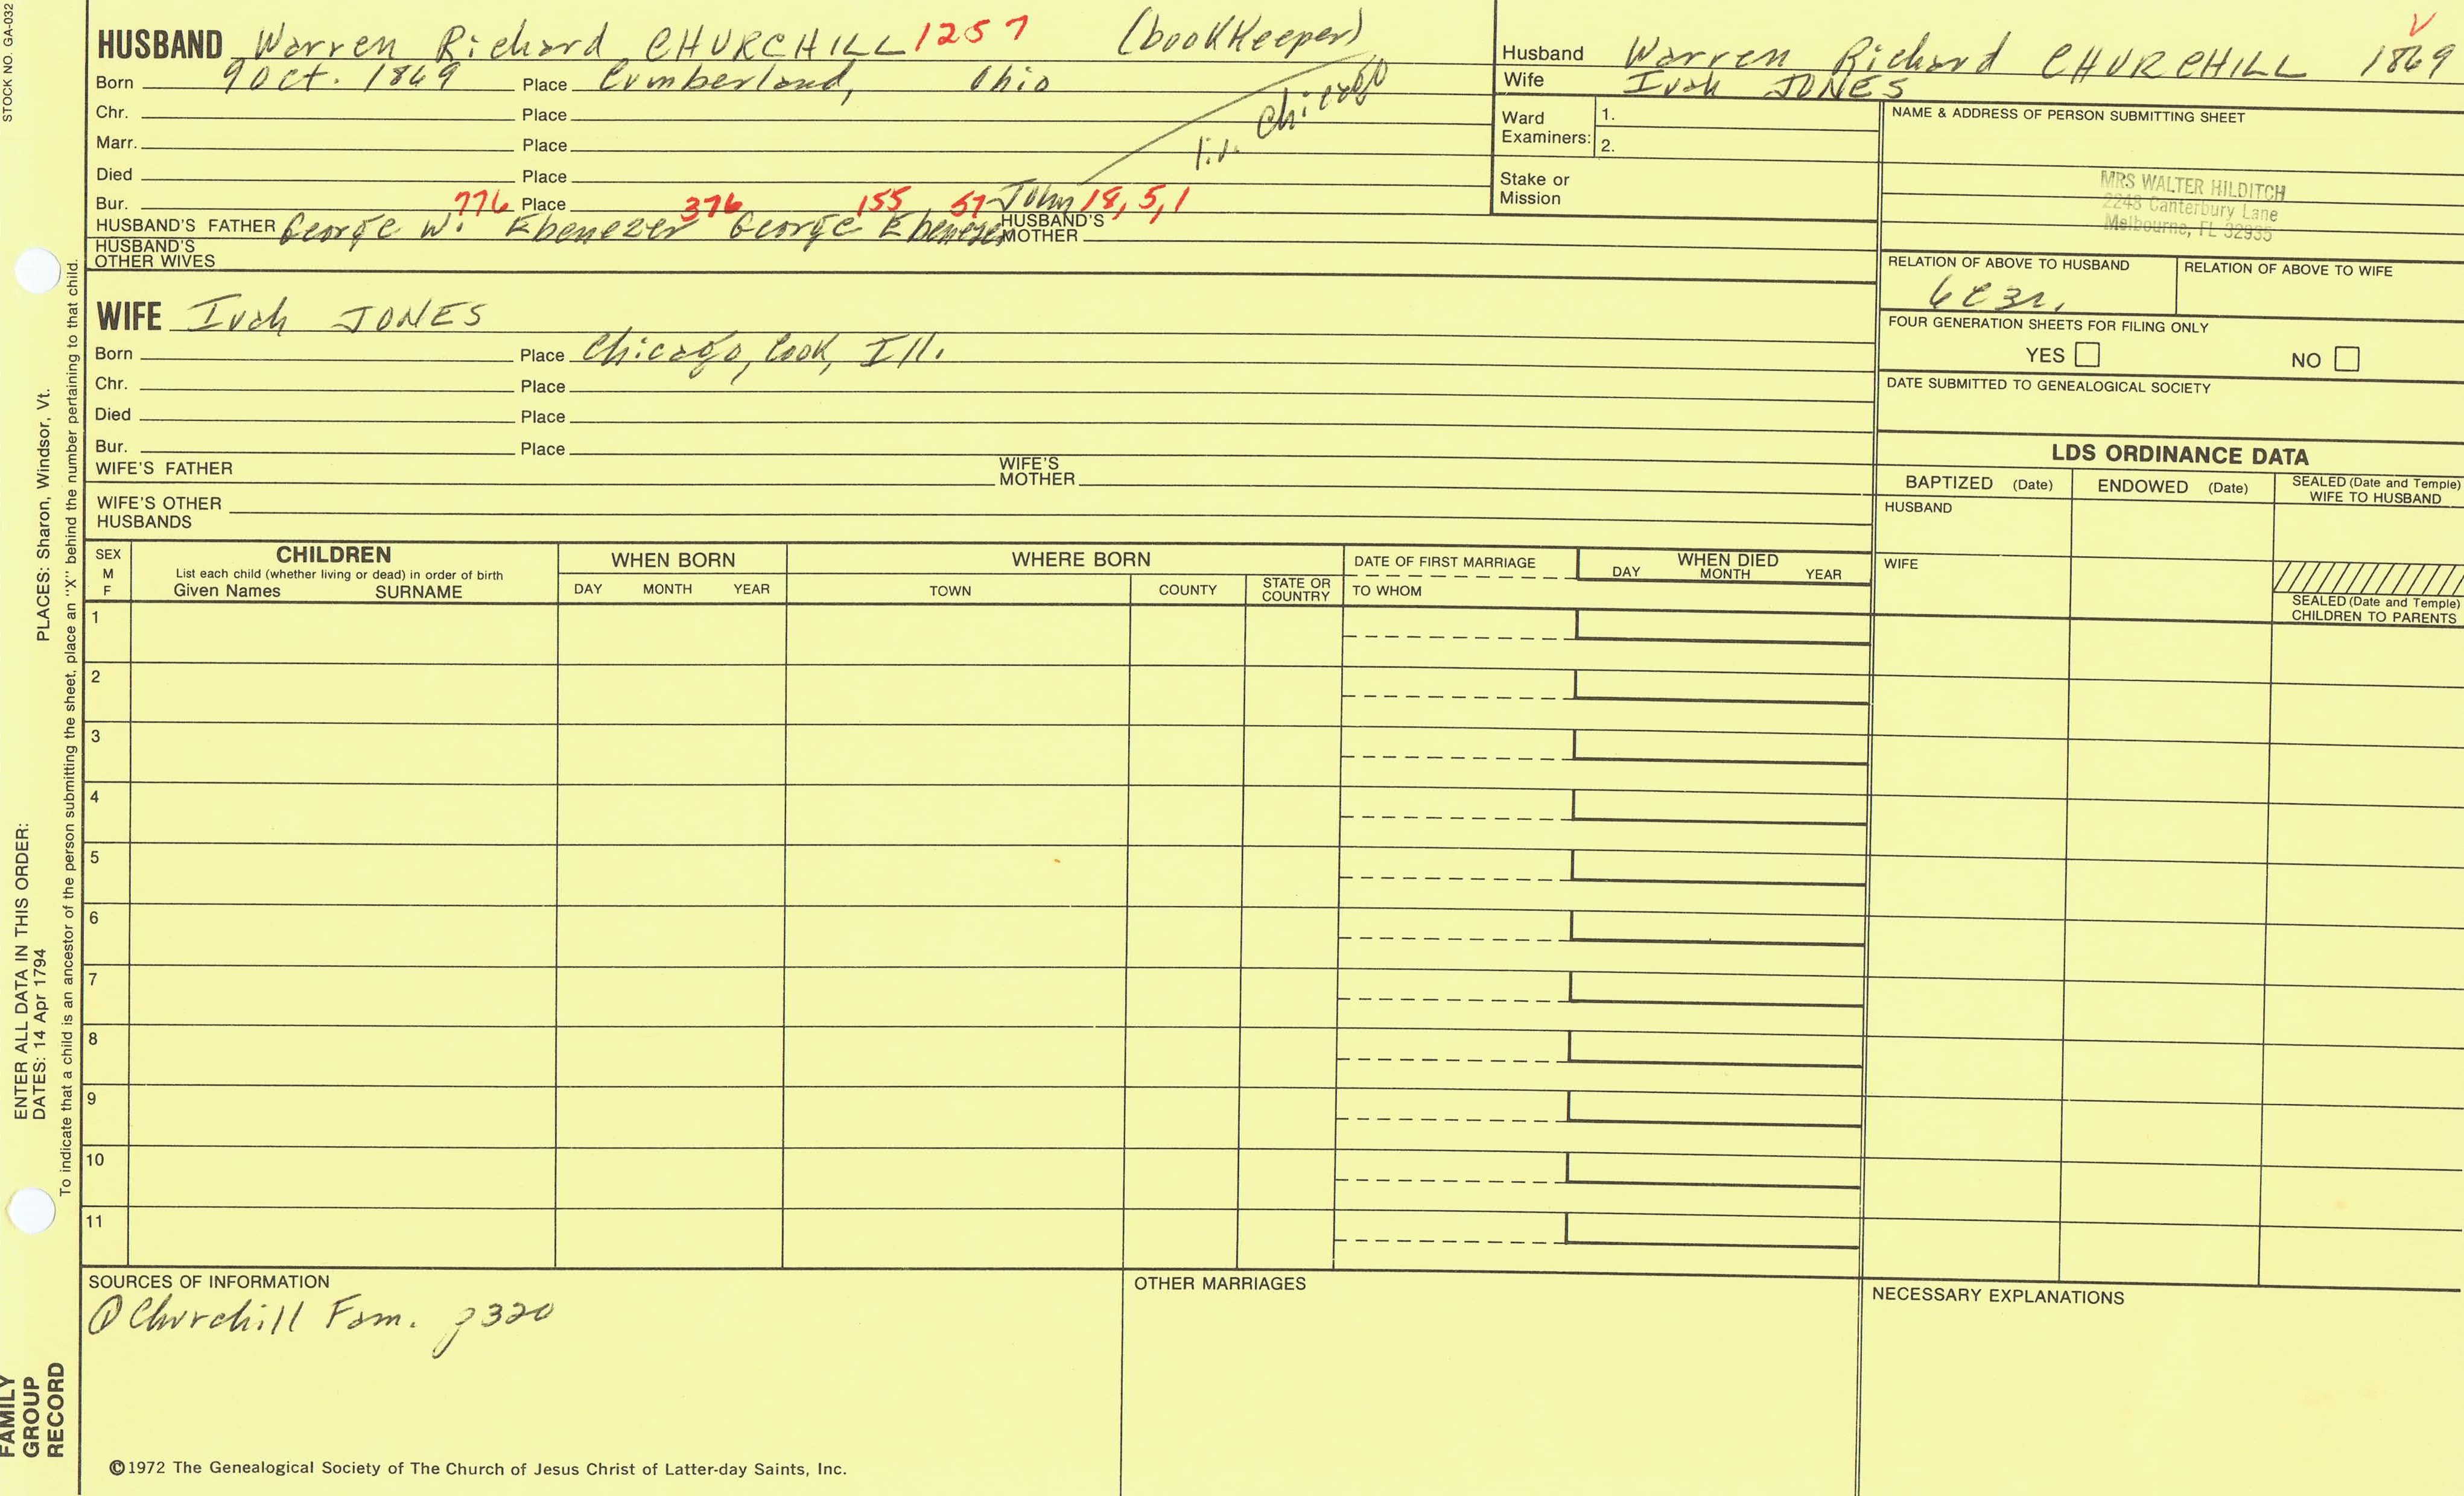 STOCK NO. GA-032
HUSBAND Warren Richard CHURCHILL 1257 (bookKeeper)
Born 9 Oct. 1869 Place Cumberland, Ohio
liv. Chicago
Chr. Place
Marr. Place
Died Place
Bur. Place
776 376 155 57 John 18, 5, 1
HUSBAND'S FATHER George W. Ebenezer George Ebenezer HUSBAND'S MOTHER
HUSBAND'S OTHER WIVES
WIFE Ivah JONES
Born Place Chicago, Cook, Ill.
Chr. Place
Died Place
Bur. Place
WIFE'S FATHER WIFE'S MOTHER
WIFE'S OTHER HUSBANDS
Husband Warren Richard CHURCHILL 1869
V
Wife Ivah JONES
Ward Examiners: 1.
2.
Stake or Mission
NAME & ADDRESS OF PERSON SUBMITTING SHEET
MRS WALTER HILDITCH
2248 Canterbury Lane
Melbourne, FL 32935
RELATION OF ABOVE TO HUSBAND RELATION OF ABOVE TO WIFE
6C3R.
FOUR GENERATION SHEETS FOR FILING ONLY
YES NO
DATE SUBMITTED TO GENEALOGICAL SOCIETY
LDS ORDINANCE DATA
BAPTIZED (Date) ENDOWED (Date) SEALED (Date and Temple) WIFE TO HUSBAND
HUSBAND
WIFE
SEALED (Date and Temple) CHILDREN TO PARENTS
SEX M F
CHILDREN
List each child (whether living or dead) in order of birth
Given Names SURNAME
WHEN BORN
DAY MONTH YEAR
WHERE BORN
TOWN COUNTY STATE OR COUNTRY
DATE OF FIRST MARRIAGE
TO WHOM
WHEN DIED
DAY MONTH YEAR
1
2
3
4
5
6
7
8
9
10
11
SOURCES OF INFORMATION
① Churchill Fam. p320
OTHER MARRIAGES
NECESSARY EXPLANATIONS
©1972 The Genealogical Society of The Church of Jesus Christ of Latter-day Saints, Inc.
ENTER ALL DATA IN THIS ORDER:
DATES: 14 Apr 1794 PLACES: Sharon, Windsor, Vt.
To indicate that a child is an ancestor of the person submitting the sheet, place an "X" behind the number pertaining to that child.
FAMILY
GROUP
RECORD